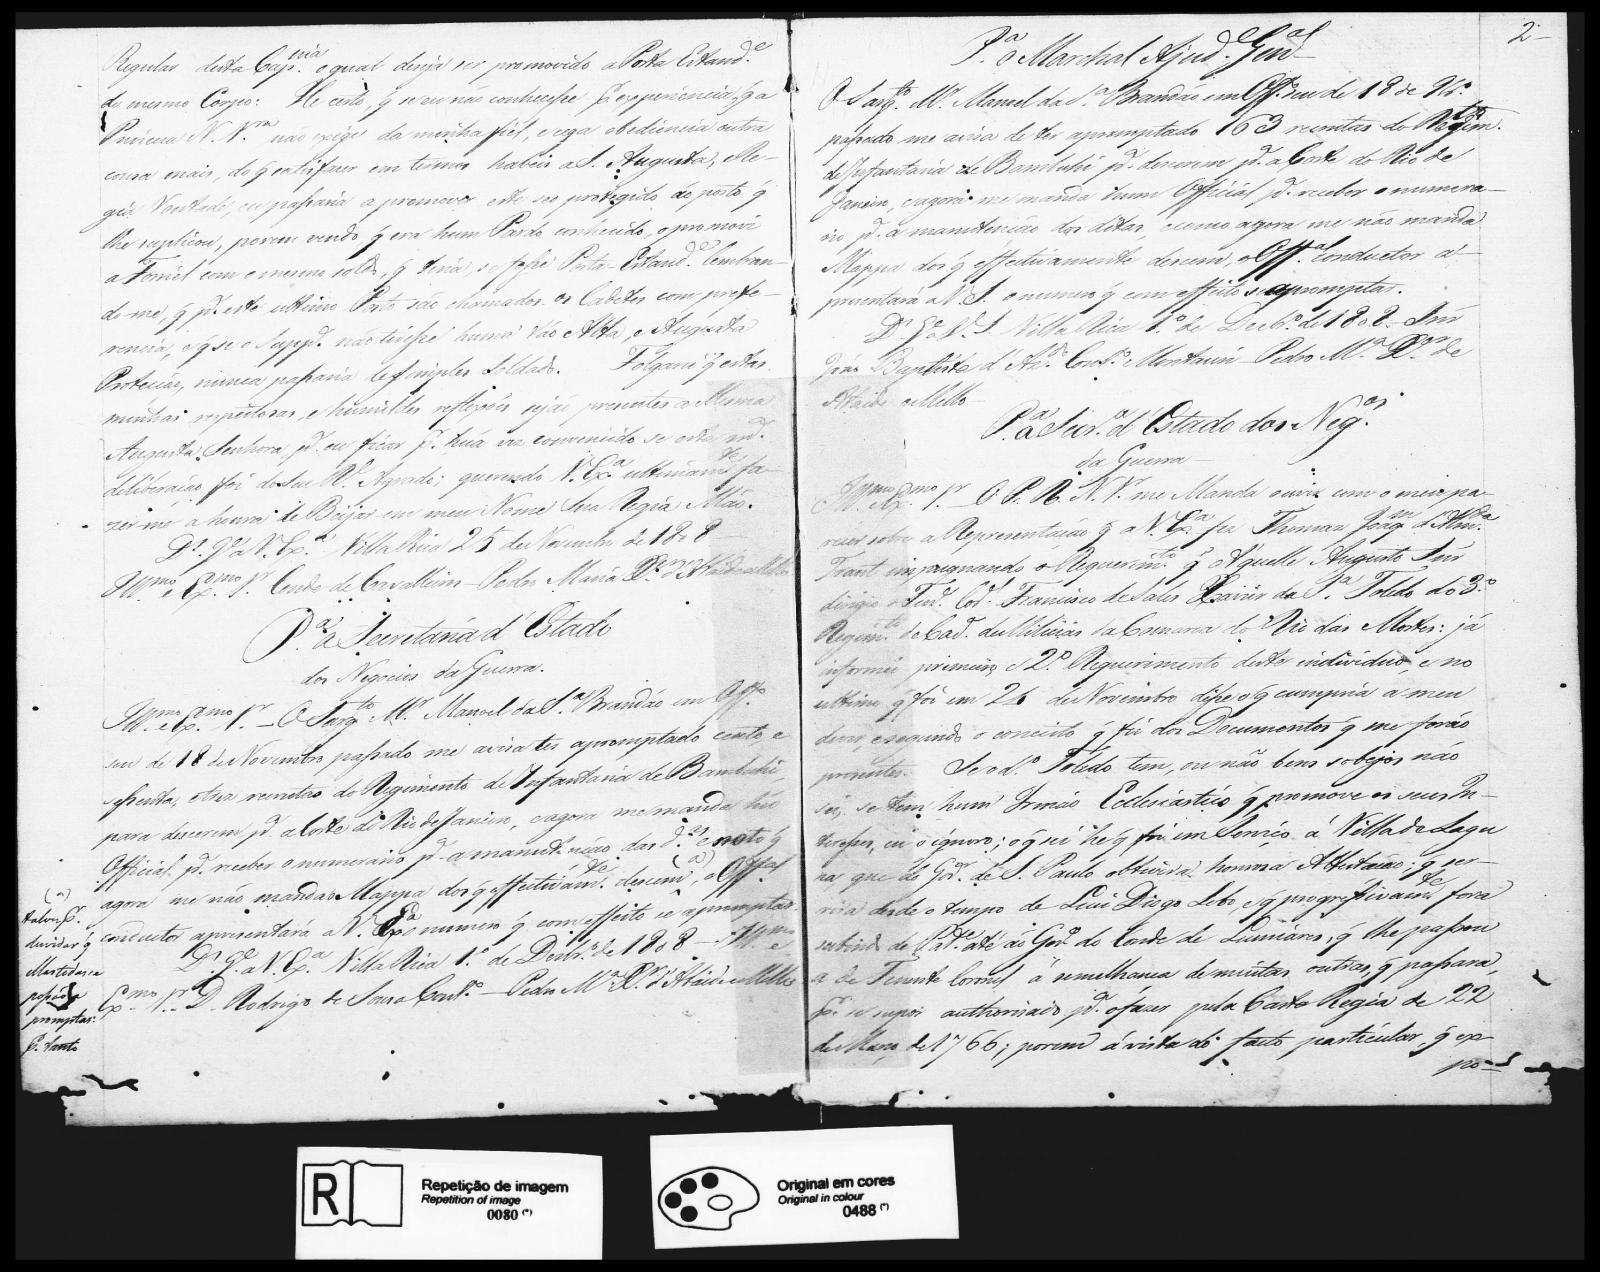 Regular desta Cap.nia o qual deseja ser promovido a Porta Estand.e
do mesmo Corpo: He certo, q se eu não conhecesse p. experiencia, q a
Princeza N. Sr.a não exige da minha fiel, e cega obediencia outra
couza mais, do q satisfazer em termos habeis a S. Augusta, e Re-
gia Vontade, eu passaria a promover este seo protegido ao posto q
lhe suplicou, porem vendo q era hum Pardo conhecido, o promovi
a Forriel com o mesmo soldo, q teria, se fosse Porta-Estand.e lembran-
do-me, q p.a este ultimo Posto são chamados os Cadetes com prefe-
rencia, e q se o Supp.e não tivesse huma tão Alta, e Augusta
Proteção, nunca passaria de simples Soldado. Folgarei q estas
minhas respeitosas, e humildes reflexões sejão presentes a Mesma
Augusta Senhora, p.a eu ficar p. hua vez convencido se esta m.a
deliberação foi do seu R.l Agrado; querendo V. Ex.a ultimam.te fa-
zer-me a honra de Beijar em meu Nome Sua Regia Mão.
D.s G.e a V. Ex.a Villa Rica 25 de Novembro de 1808
Ill.mo e Ex.mo Sr. Conde de Cavalleiros - Pedro Maria X.er d'Ataide e Mello
P.a a Secretaria d'Estado
dos Negocios da Guerra.
Ill.mo e Ex.mo Sr. - O Sarg.to M.r Manoel da S.a Brandão em Off.o
seu de 18 de Novembro passado me avisa ter apromptado cento e
sessenta, e tres recrutas do Regimento de Infantaria de Bambuhi,
para descerem p.a a Corte do Rio de Janeiro, e agora me manda hu
Official p.a receber o numerario p.a a manutenção das d.as e noto q
agora me não manda o Mappa dos q effectivam.te descem, (a) o Off.al
conductor apresentará a V. Ex.a o numero q com effeito se apromptar.
D.s G.e a V. Ex.a Villa Rica 1.o de Dezbr.o de 1808 - Ill.mo e
Ex.mo Sr. D. Rodrigo de Souza Cout.o - Pedro M.a X.er d'Ataide e Mello
(a)
talvez p.
duvidar q
promptas:
P. tanto
2-
P.a o Marechal Ajud.e Gen.al
O Sarg.to M.r Manoel da S.a Brandão em Off.o seu de 18 de 9br.o
passado me avisa de ter apromptado 163 recrutas do Regim.to
de Infantaria de Bambuhi p.a descerem p.a a Corte do Rio de
Janeiro, e agora me manda hum Official p.a receber o numera-
rio p.a a manutenção dos ditos, e como agora me não manda
Mappa dos q effectivamente descem, o Off.al conductor a-
prezentará a V. S. o numero q com effeito se apromptar.
D.s G.e a V. S. Villa Rica 1.o de Dezb.o de 1808. Snr
João Baptista d'Az.do Cout.o Montauri - Pedro M.a X.er de
Ataide e Mello -
P.a a Secr.a d'Estado dos Neg.os
da Guerra -
Ill.mo e Ex.mo Sr. - O P. R. N. Sr. me Manda ouvir com o meu pa-
recer sobre a Representação q a V. Ex.a fez Thomaz Joaq.m d'Alm.da
Trant impugnando o Requerim.to q Aquelle Augusto Snr
dirigio o Ten.e Cor.l Francisco de Sales Xavier da S.a Toledo do 3.o
Regim.to de Cav. de Milicias da Comarca do Rio das Mortes: já
informei primeiro e 2.o Requerimento deste individuo, e no
ultimo q foi em 26 de Novembro disse o q cumpria a meu
dever, e segundo o conceito q fiz dos Documentos q me forão
prezentes. Se o d.o Toledo tem, ou não bens sobejos não
sei, se tem hum Irmão Ecclesiastico q promove os seus In-
teresses, eu o ignoro; o q sei he q foi em Serviço á Villa de Lagu
na, que do G.or de S. Paulo obtivera honroza Attestação; q ser-
vira desde o tempo de Luiz Diogo Lobo, e q progressivam.te fora
subindo de Cad.te até ao G.or do Conde de Lumiares, q lhe passou
a de Tenente Coronel á semelhança de muitas outras, q passara,
por se supor authorizado p.a o fazer pela Carta Regia de 22
de Março de 1766; porem á vista do facto particular, q ex
po-
R
Repetição de imagem
Repetition of image
0080 (*)
Original em cores
Original in colour
0488 (*)